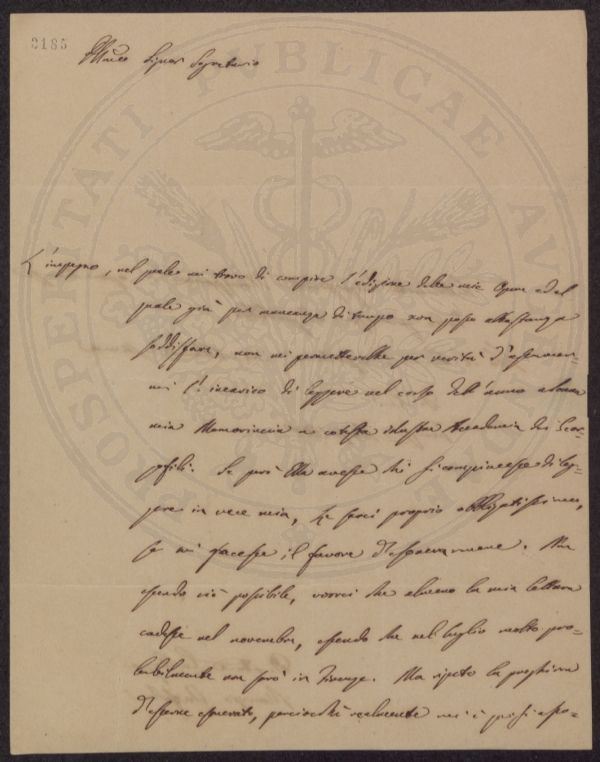 2185
Signor Segretario
L'impegno, nel quale mi trovo di compire l'edizione delle mie Opere ed al
quale già per mancanza di tempo non posso abbastanza
soddisfare, non mi permetterebbe per verità d'assumer-
mi l'incarico di leggere nel corso dell'anno alcuna
mia Memorietta a cotesta illustre Accademia dei Geor-
gofili. Se però Ella avesse chi si compiacesse di leg-
gere in vece mia, Le sarei proprio obbligatissimo,
se mi facesse il favore d'esonerarmene. Non
essendo ciò possibile, vorrei che almeno la mia lettura
cadesse nel novembre, essendo che nel luglio molto pro-
babilmente non sarò in Firenze. Ma ripeto la preghiera
d'esserne esonerato, perciocchè realmente mi è quasi
PROSPERITATI PUBLICAE AU